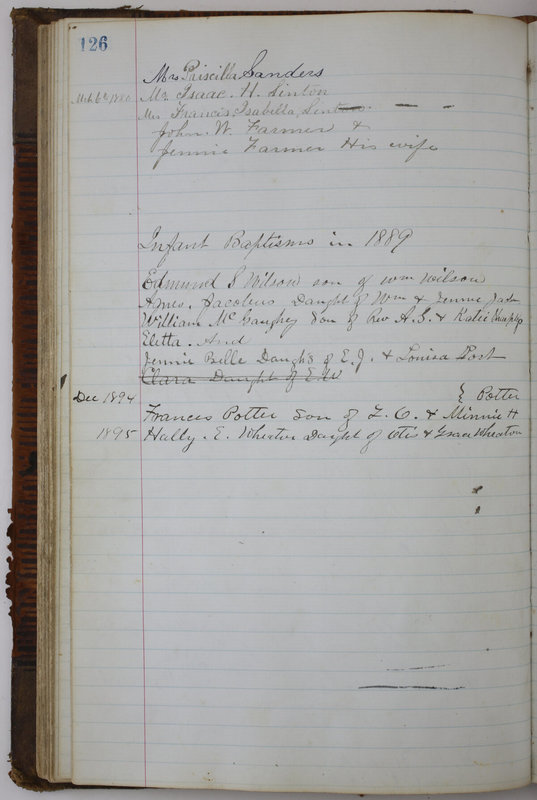 126
Mrs Priscilla Sanders
Mch 6th 1880 Mr. Isaac. H. Linton
Mrs Francis Isabella Linton.
John. W. Farmer &
Jennie Farmer His wife
Infant Baptisms in 1889
Edmund S Wilson son of Wm Wilson
Agnes. Jacobus Daught of Wm & Jennie
William McGaughey Son of Rev A. G. & Katie
Eletta. And
Jennie Belle Daughts of E. J. & Louisa Post
Clara Daught of E W
} Potter
Dec 1894 Frances Potter Son of L. C. & Minnie H
1895 Hally. E. Wheaton Daught of Otis & Grace Wheaton